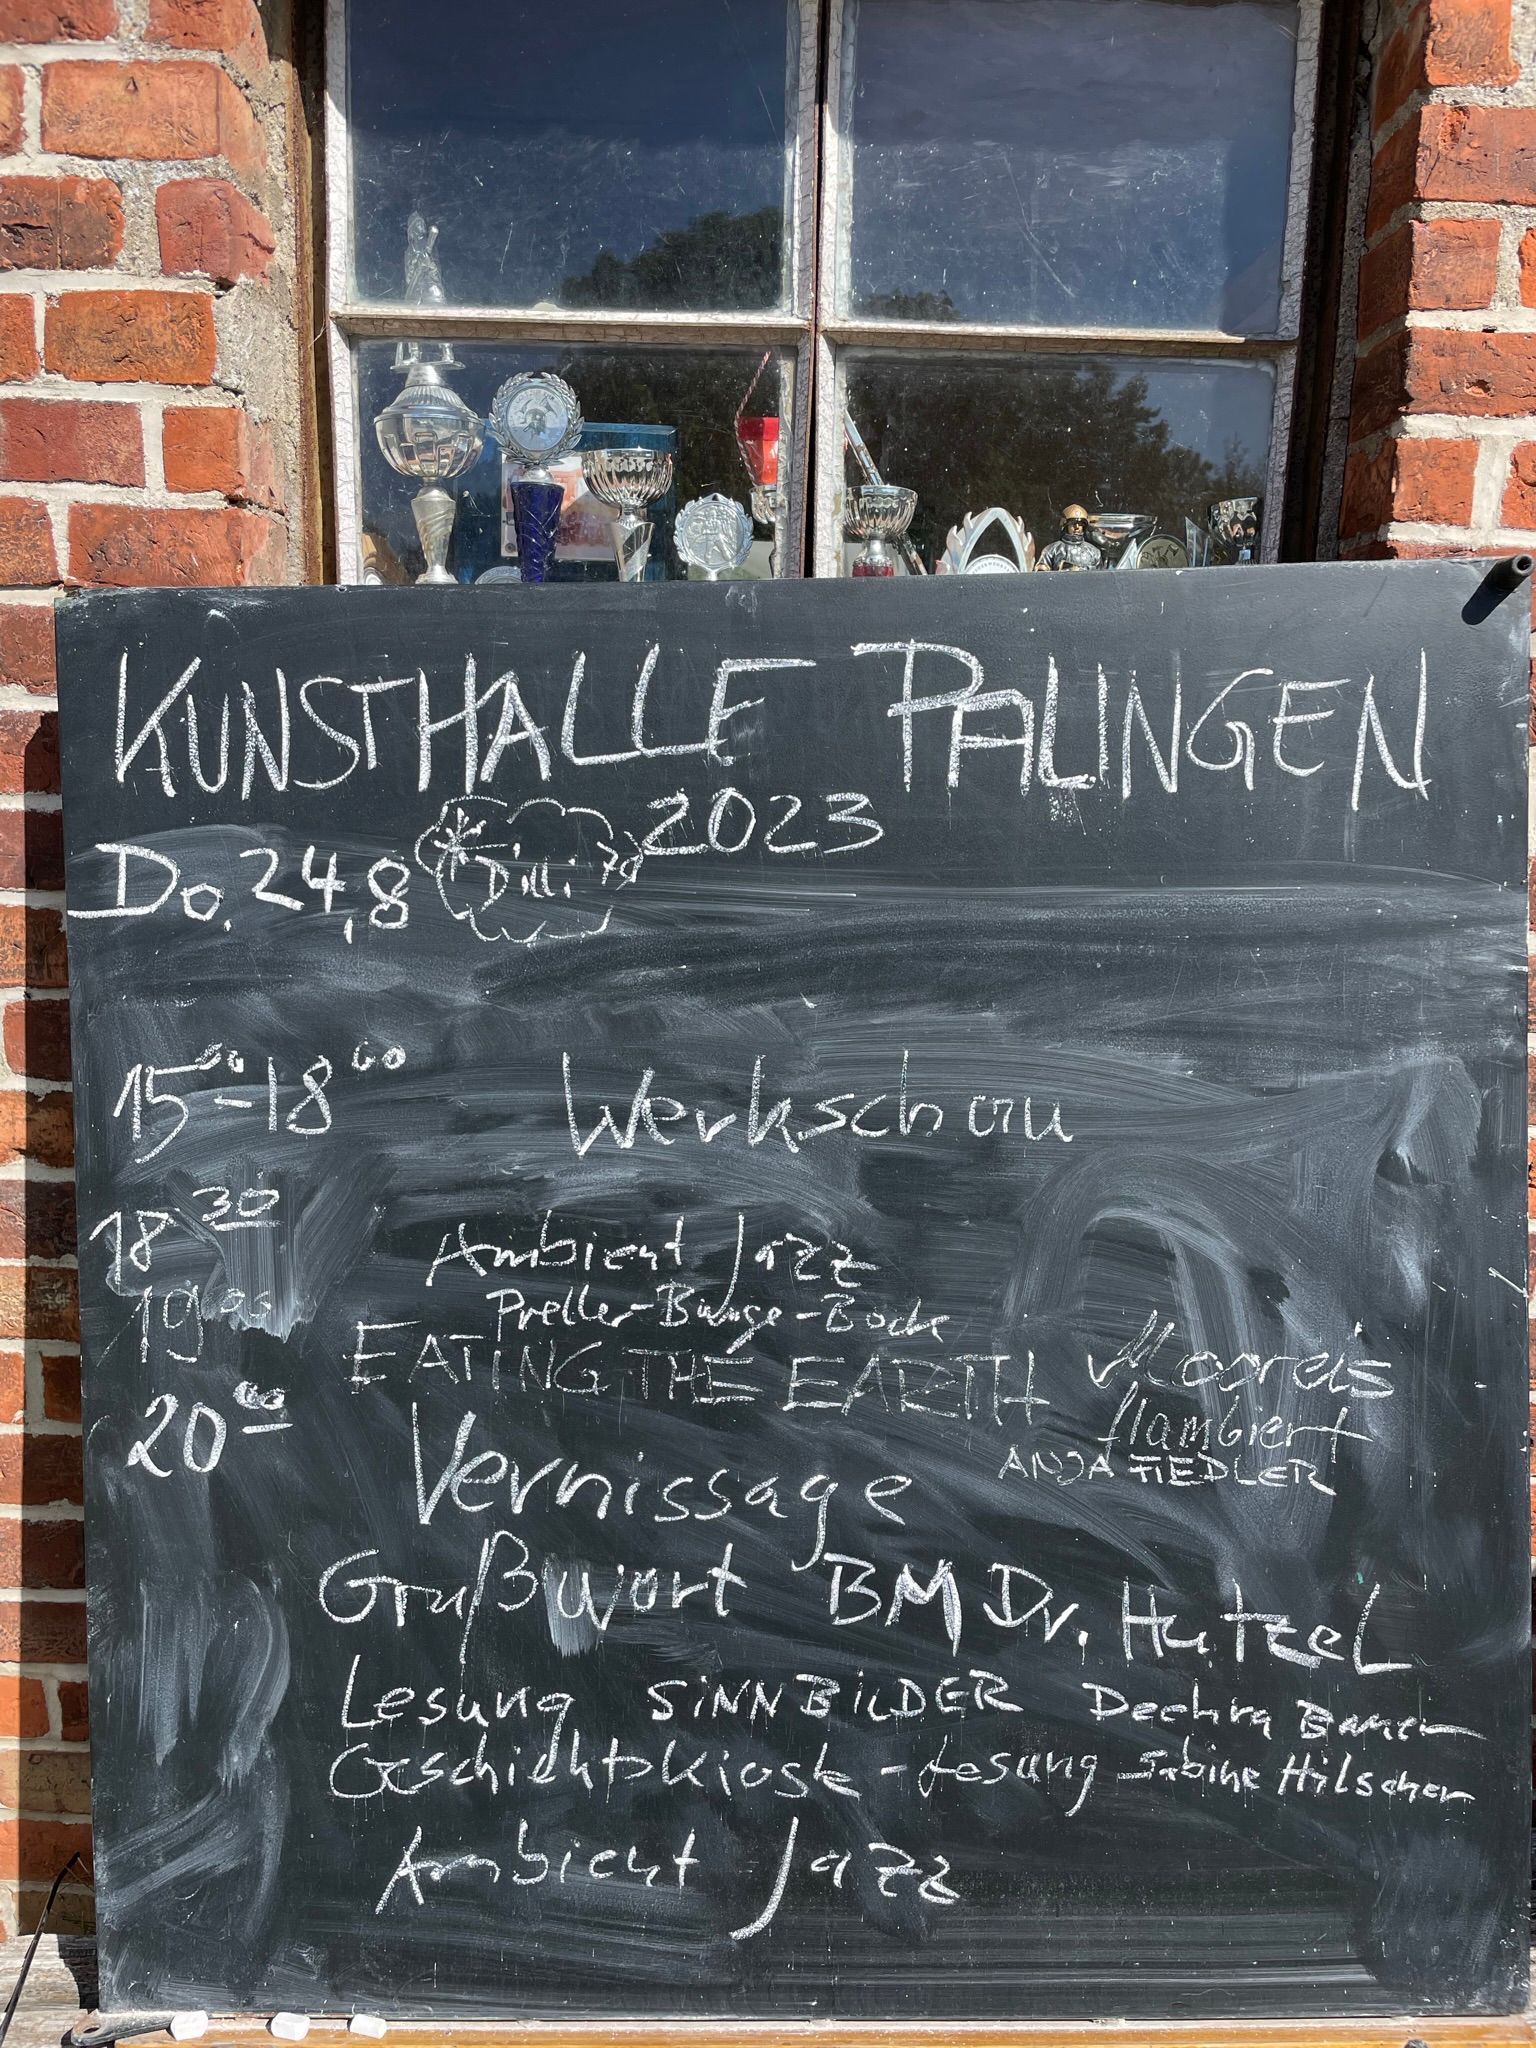 KUNSTHALLE PALINGEN
2023
Do. 24.8 Dilli 70
15⁰⁰-18⁰⁰ Werkschau
18³⁰ Ambient Jazz
Preller-Bunge-Bock
19⁰⁵ EATING THE EARTH Mooreis
flambiert
ANJA FIEDLER
20⁰⁰ Vernissage
Grußwort BM Dr. HutzeL
Lesung SiNNBiLDER
Geschichtskiosk - Lesung Sabine Hilscher
Ambient Jazz